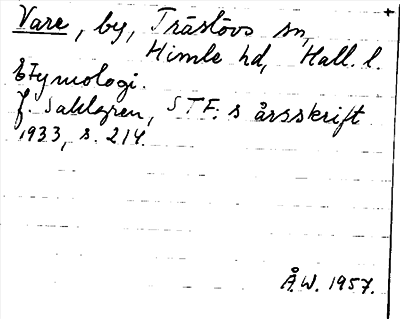 Vare, by, Träslövs sn,
Himle hd, Hall. l.
Etymologi.
J. Sahlgren, STF:s årsskrift
1933, s. 214.
Å.W. 1957.